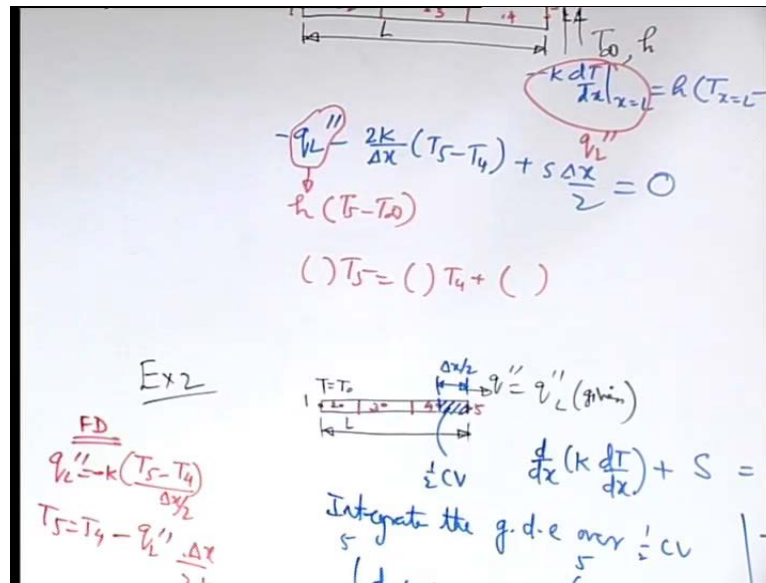 1 3 .4
L
T∞, h
-k dT/dx|x=L = h(Tx=L -
qL''
-qL'' - 2K/Δx (T5-T4) + S Δx/2 = 0
h(T5-T∞)
( ) T5 = ( ) T4 + ( )
Ex 2
Δx/2
T=T0
q'' = qL'' (given)
1 4 5
L
1/2 CV
FD
qL'' = -k (T5-T4)/(Δx/2)
T5 = T4 - qL'' . Δx
d/dx (k dT/dx) + S =
Integrate the g.d.e over 1/2 CV
5 5